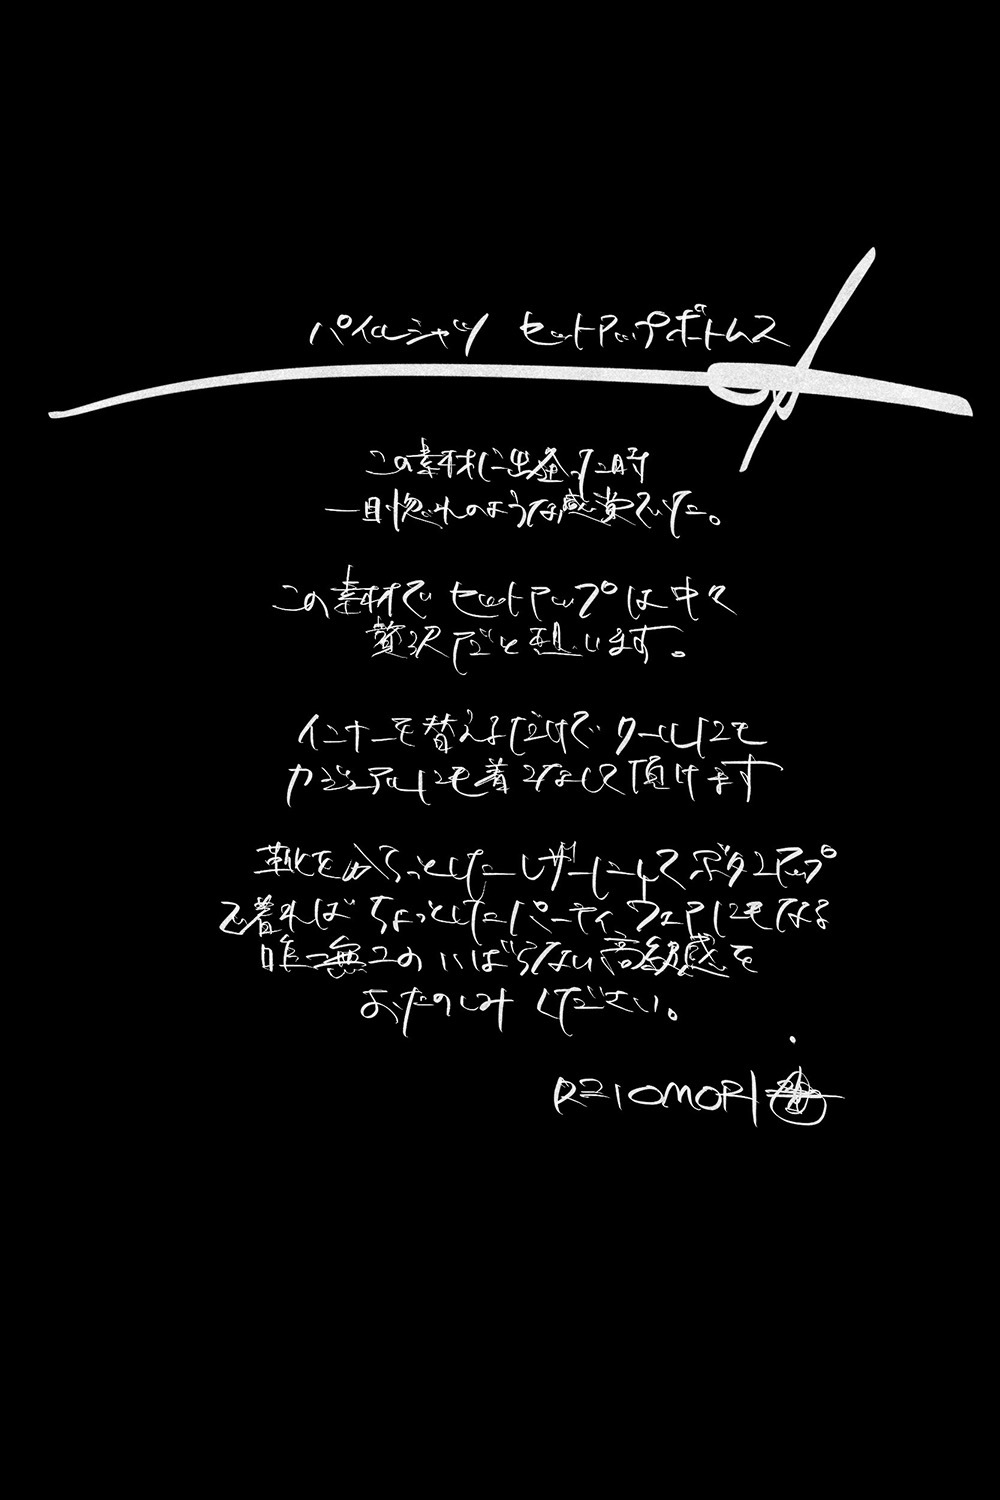 パイルシャツ セットアップボトムス
この素材に出逢った時
一目惚れのような感覚でした。
この素材で セットアップは中々
贅沢だと思います。
インナーを替えるだけで クールにも
カジュアルにも着こなして頂けます
靴をかちっとしたレザーにして ボタンアップ
で着れば ちょっとしたパーティウェアにもなる
唯一無二の いばらない高級感を
おたのしみ ください。